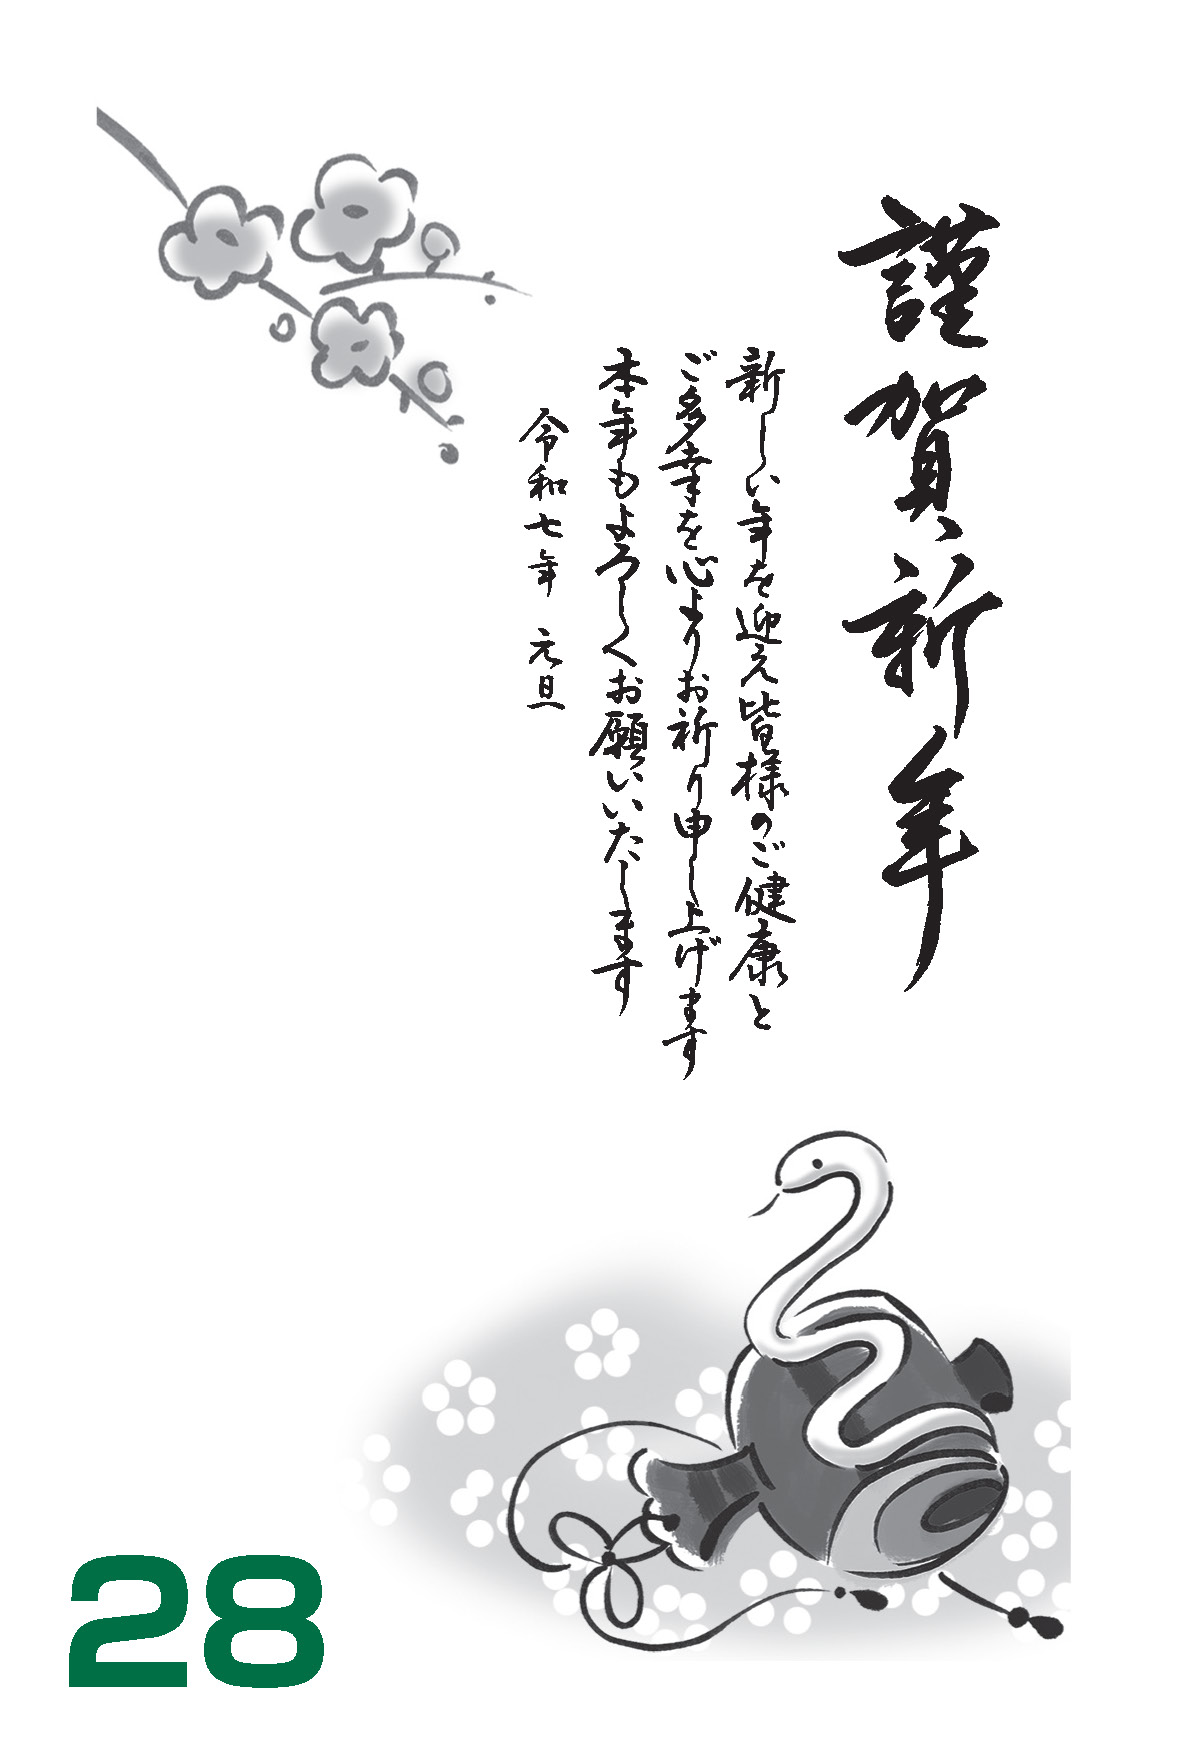 謹賀新年
新しい年を迎え皆様のご健康と
ご多幸を心よりお祈り申し上げます
本年もよろしくお願いいたします
令和七年 元旦
28